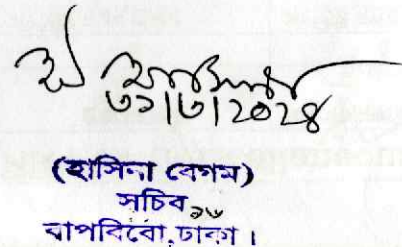 ৩১/৩/২০২৪
(হাসিনা বেগম)
সচিব
বাপবিবো, ঢাকা।